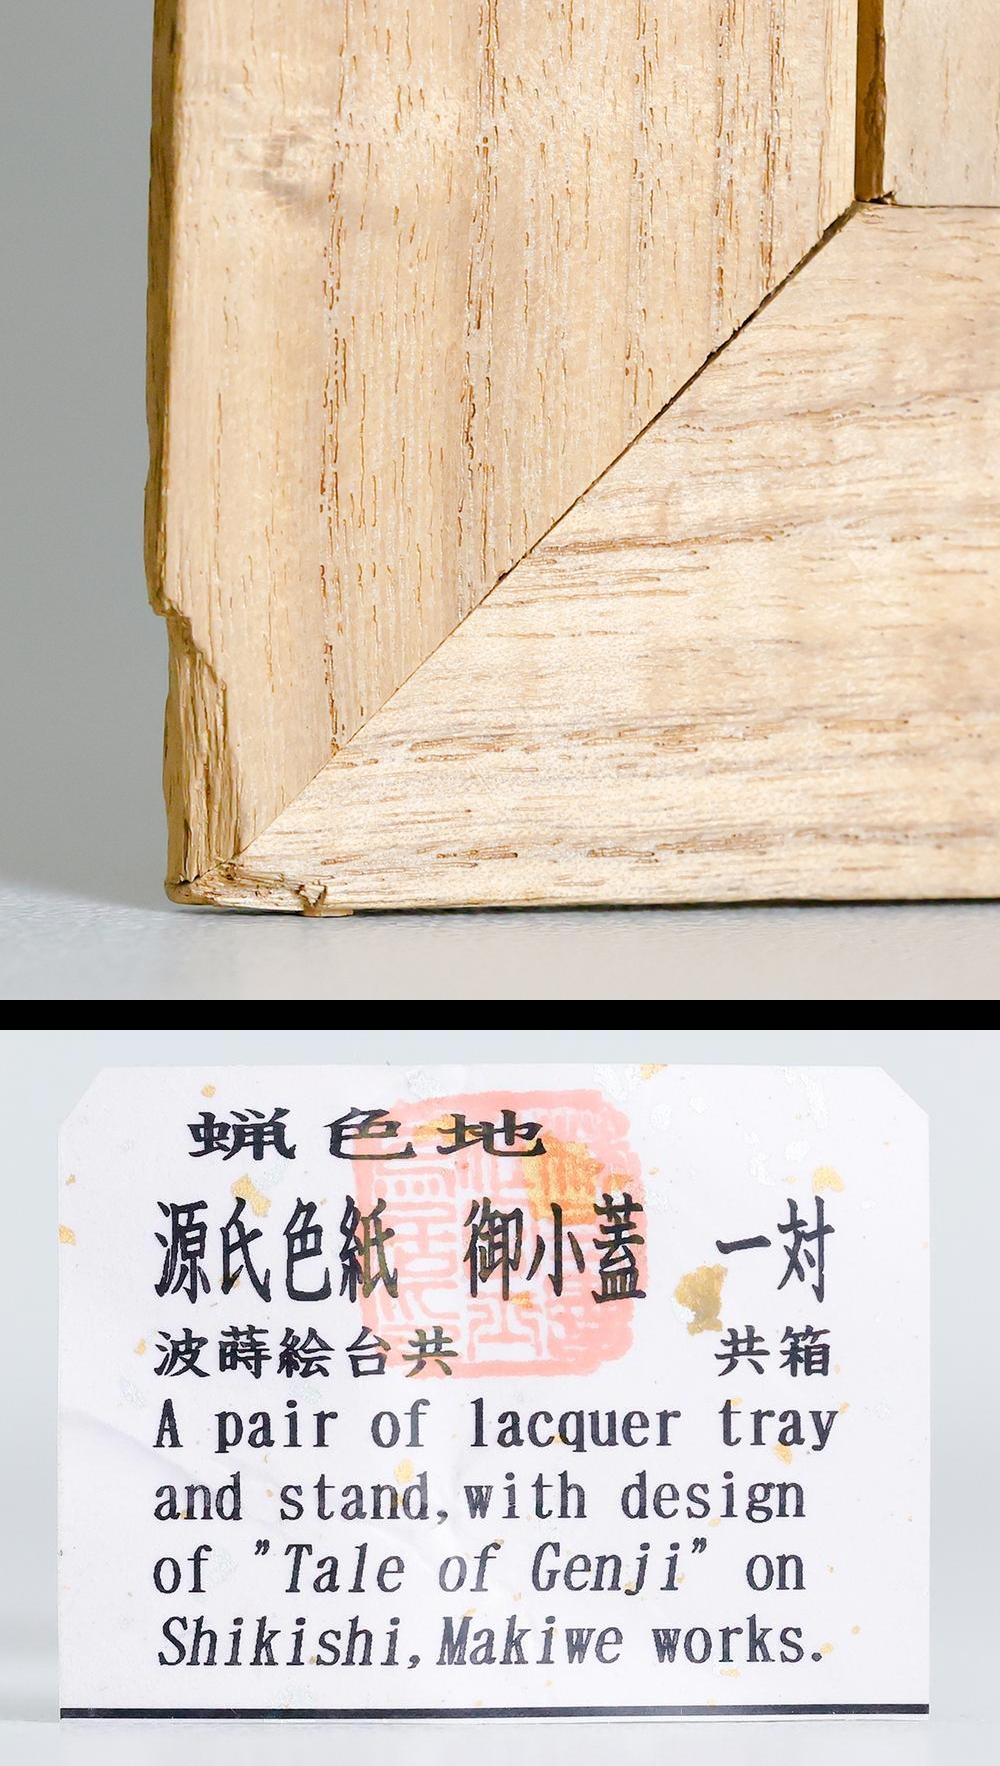 蝋色地
源氏色紙 御小蓋 一対
波蒔絵台共 共箱
A pair of lacquer tray
and stand,with design
of ”Tale of Genji” on
Shikishi,Makiwe works.